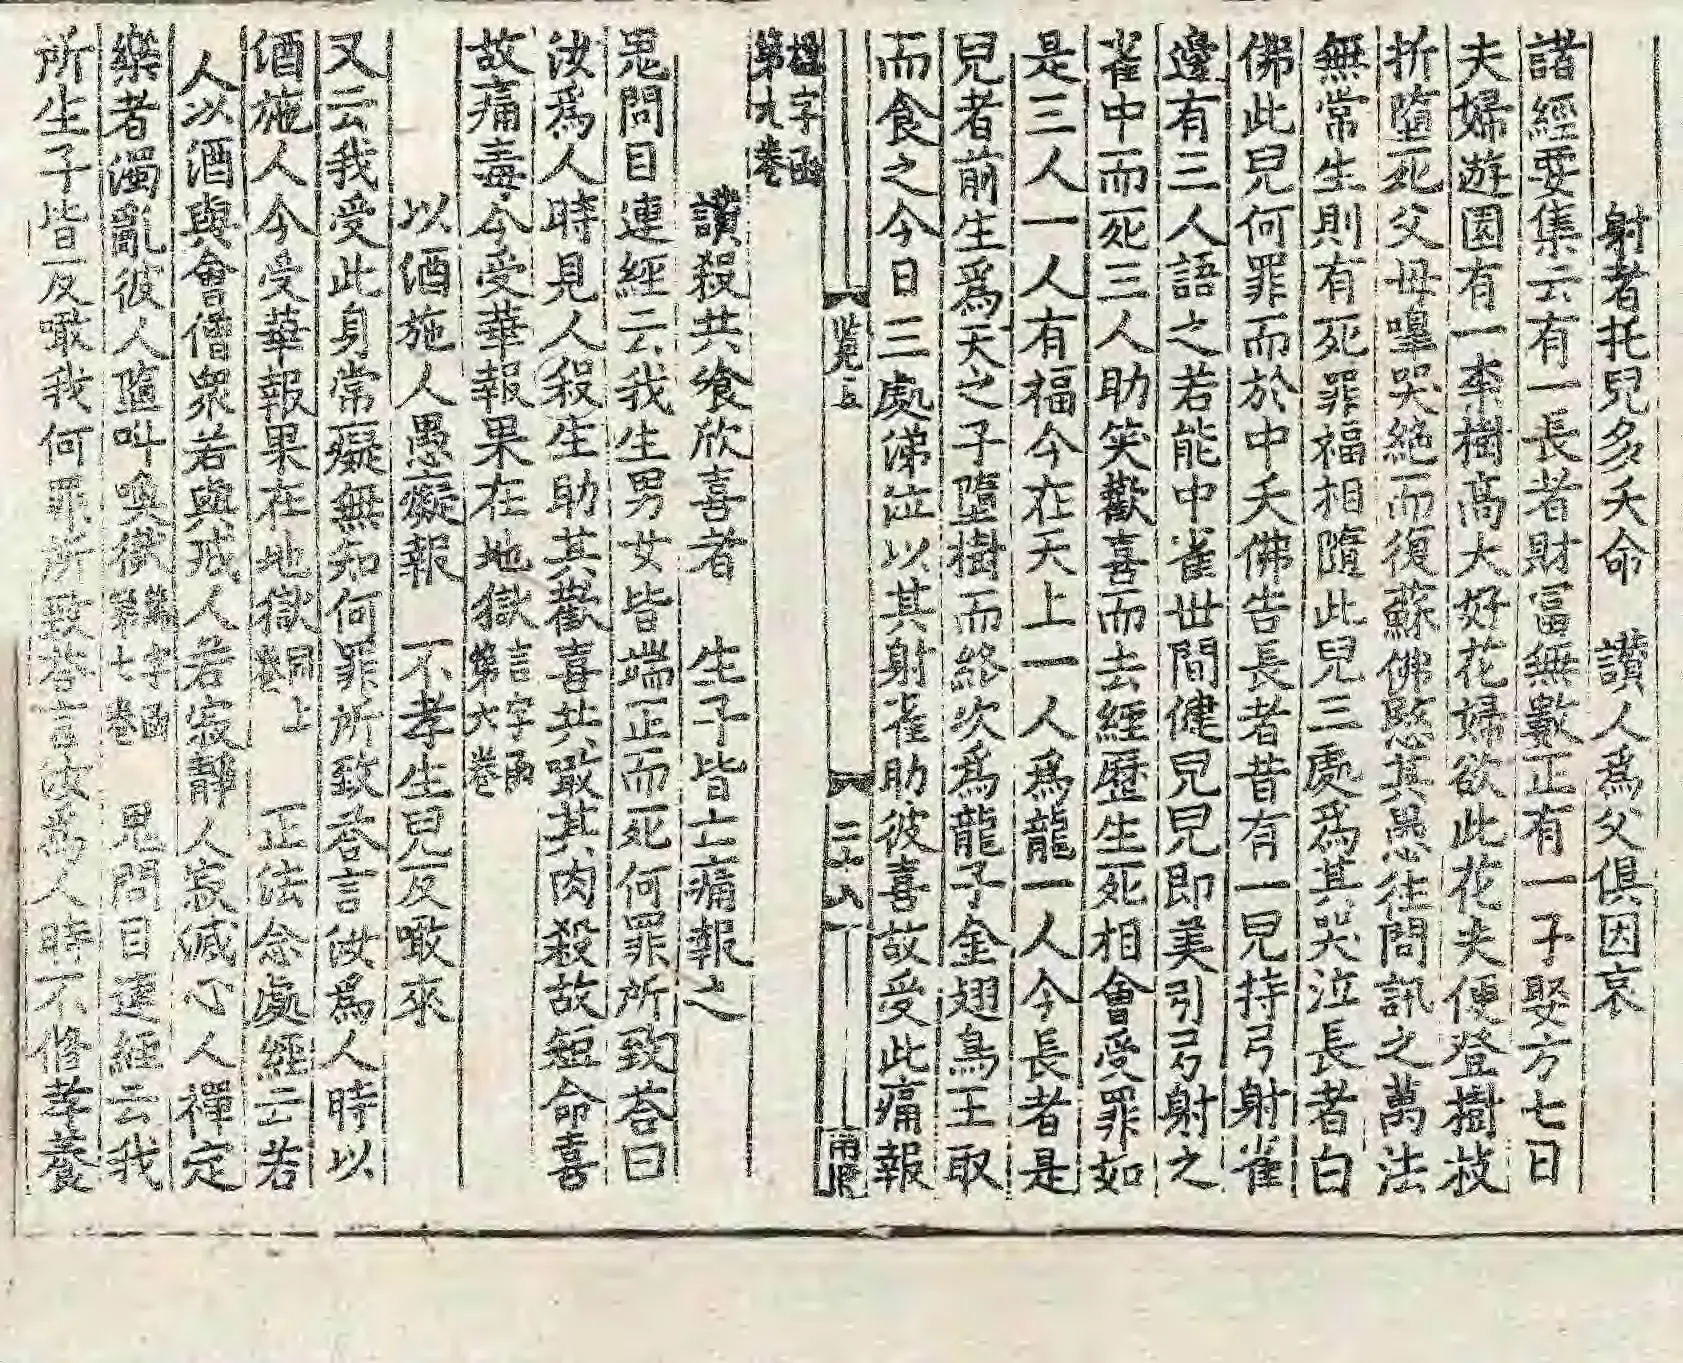 射者托兒多夭命　讃人爲父俱因哀
諸經要集云有一長者財冨無數正有一子娶方七日
夫婦遊園有一李樹高大好花婦欲此花夫便登樹枝
折墮死父母嘷哭絶而復蘇佛愍其愚往問訊之萬法
無常生則有死罪福相隨此兒三處爲其哭泣長者白
佛此兒何罪而於中夭佛告長者昔有一兒持弓射雀
邊有三人語之若能中雀世間健兒兒即美引弓射之
雀中而死三人助笑歡喜而去經歷生死相會受罪如
是三人一人有福今在天上一人爲龍一人今長者是
兒者前生爲天之子墮樹而終次爲龍子金翅鳥王取
而食之今日三處涕泣以其射雀助彼喜故受此痛報
字函
第九卷
讃殺共飡欣喜者　生子皆亡痛報之
鬼問目連經云我生男女皆端正而死何罪所致荅曰
汝爲人時見人殺生助其歡喜共噉其肉殺故短命喜
故痛毒今受華報果在地獄言字函第六卷
以酒施人愚癡報　不孝生兒反噉來
又云我受此身常癡無知何罪所致荅言汝爲人時以
酒施人今受華報果在地獄同上卷　正法念處經云若
人以酒與會僧衆若與戒人若寂靜人寂滅心人禪定
樂者濁亂彼人墮叫喚獄字函第七卷　鬼問目連經云我
所生子皆反噉我何罪所致荅言汝爲人時不修孝養